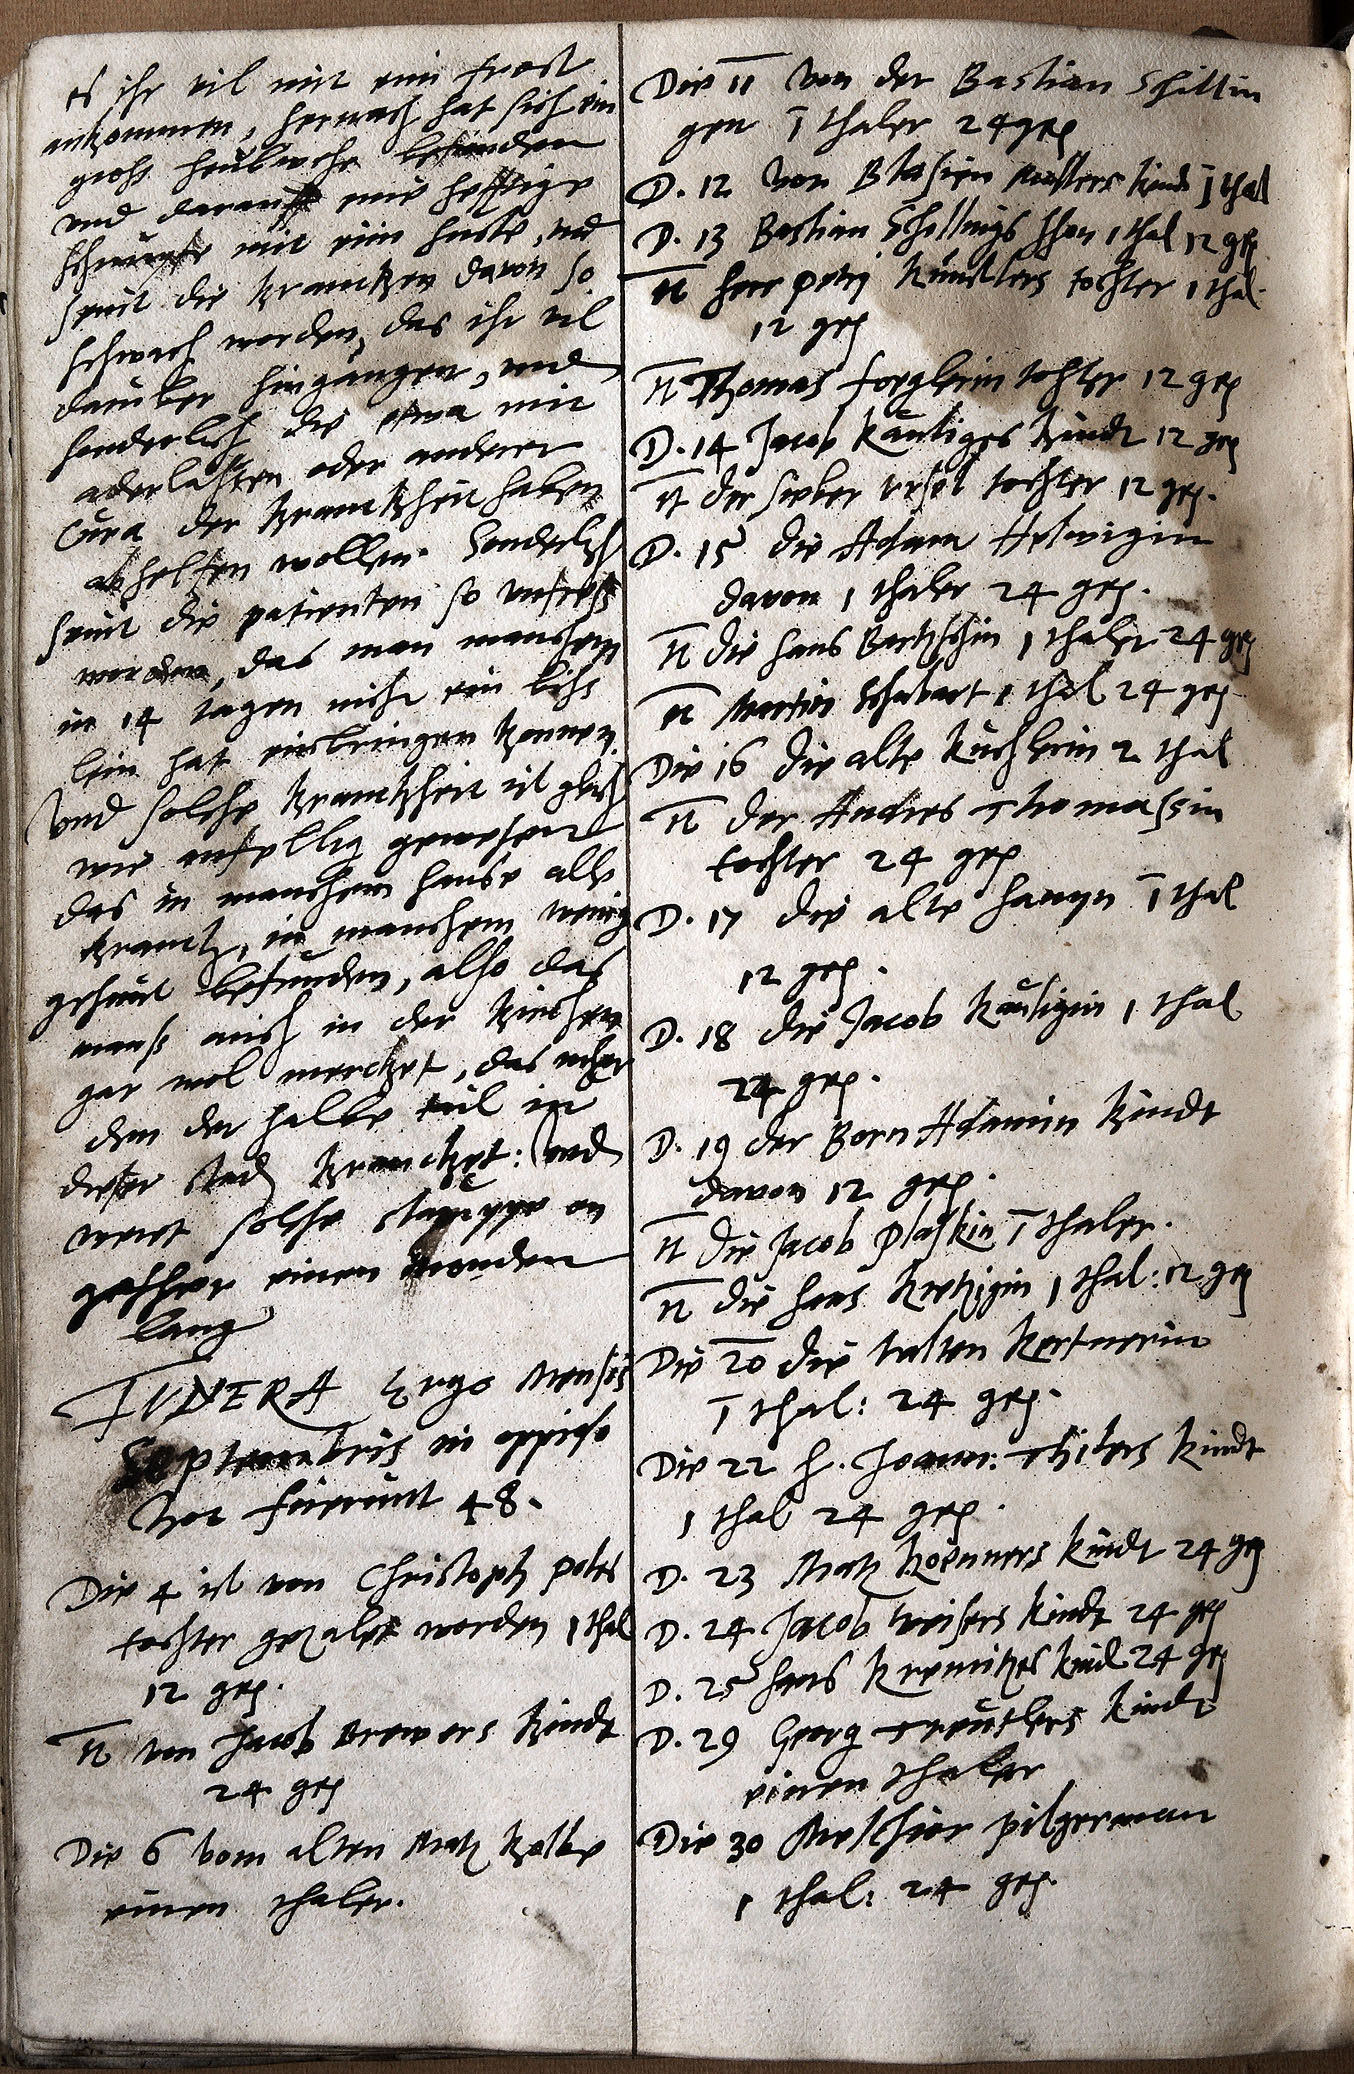 es ihr vil mit eim frost
ankommen, hernach hat sich ein
gross heubtwehe befunden
und darauff eine hefftige
schnuppe mit eim huste, und
seint die krancken davon so
schwach worden, das ihr vil
daruber hingangen, und
sonderlich die etwa mit
aderlassen oder anderer
Cura der kranckheit haben
abhelffen wollen. Sonderlich
seint die patienten so
worden, das man manchem
in 14 tagen nicht ein biss
lein hat einbringen konnen.
Und solche kranckheit ist gleich
wie anfellig gewesen
das in manchem hause alle
kranck, in manchem wenig
gesunt befunden, also das
mans auch in der kirchen
gar wol mercket, das
den der halbe teil in
dieser stad krancket: Und
weret solche an
gefher einen monden
lang
FUNERA Ergo Mensis
Septembris in oppido
hoc fuerunt 48.
Die 4 ist von Christoph
tochter gezalet worden 1 thal
12 gep.
π von Jacob Brewers kindt
24 gep
Die 6 vom alten Matz Kolbe
einen thaler.
Die 11 von der Bastian Schillin
gen 1 thaler 24 gep
D. 12 von Blasien kindt 1 thal
D. 13 Bastian Schillings 1 thal 12 gep
π herr petri Kunstlers tochter 1 thal.
12 gep
π Thomas tochter 12 gep
D. 14 Jacob Kautiges kindt 12 gep
π der tochter 12 gep.
D. 15 die Adam Helwigin
davon 1 thaler 24 gep.
π die hans 1 thaler 24 gep
π Martin Schubart 1 thal 24 gep
Die 16 die alte Kuchlerin 2 thal
π der Andres Thomassin
tochter 24 gep
D. 17 die alte 1 thal
12 gep.
D. 18 die Jacob 1 thal
24 gep.
D. 19 der Born Adamin kindt
davon 12 gep.
π die Jacob Plaskin 1 thaler.
π die hans 1 thal: 12 gep
Die 20 die
1 thal: 24 gep.
Die 22 h. kindt
1 thal 24 gep.
D. 23 Matz kindt 24 gep
D. 24 Jacob kindt 24 gep
D. 25 hans kind 24 gep
D. 29 Georg Treutlers kindt
einen thaler
Die 30 Melchior pilgerman
1 thal: 24 gep.